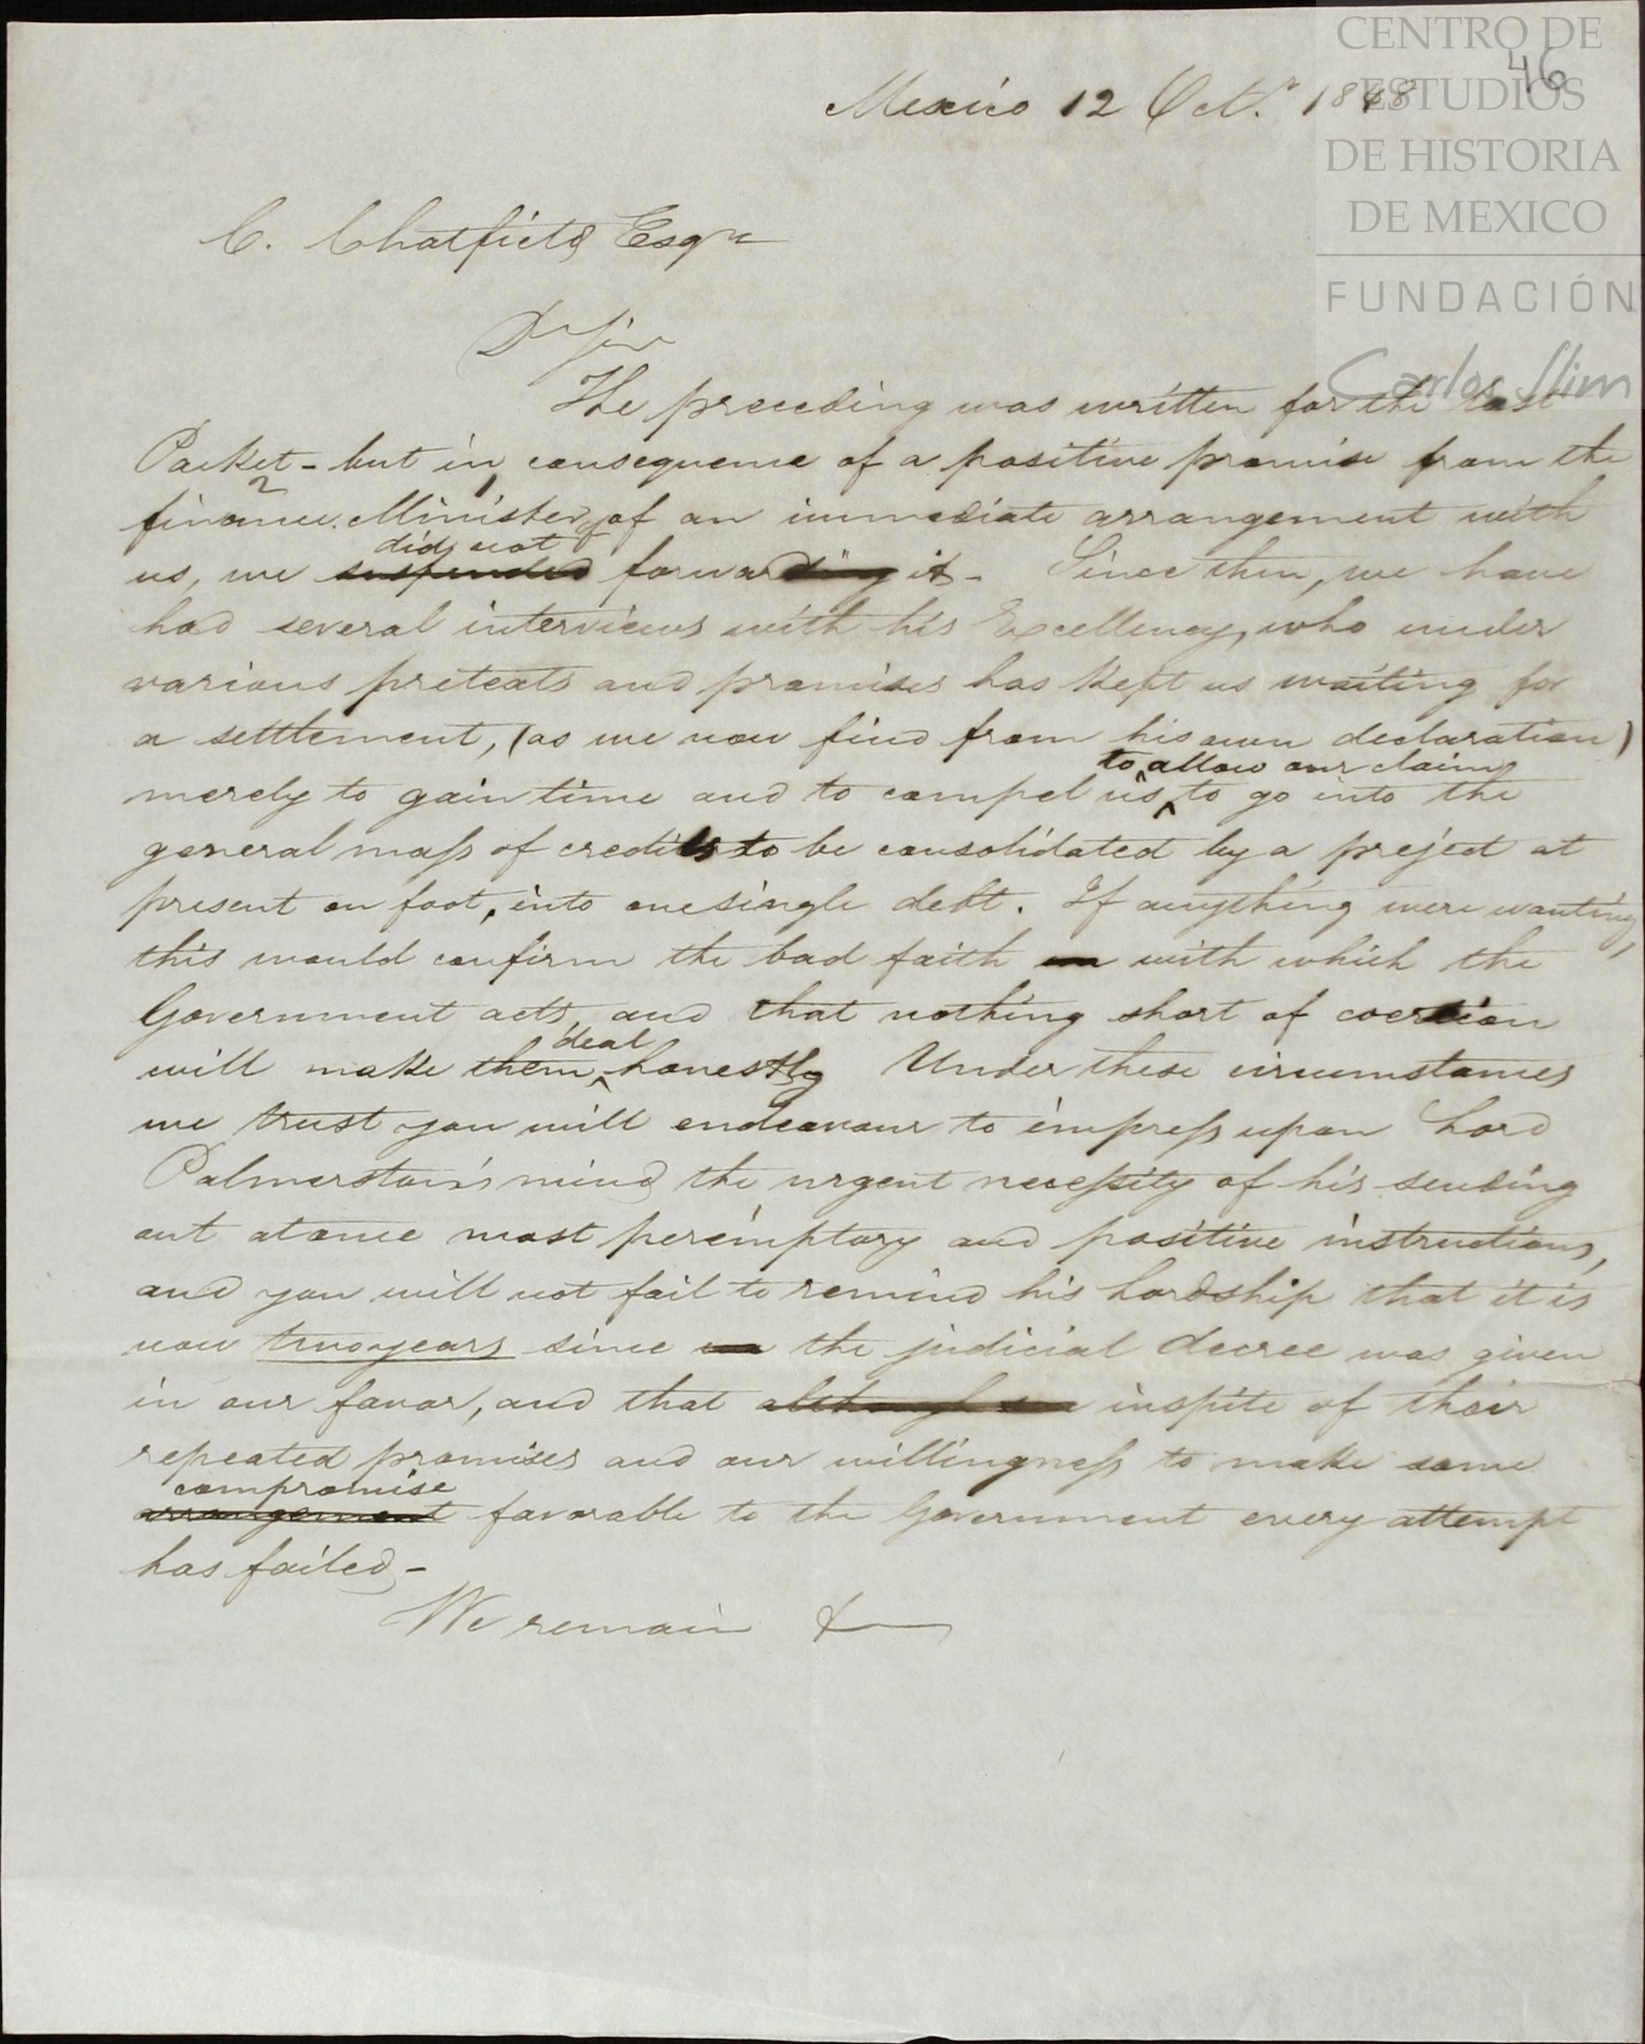 CENTRO DE
ESTUDIOS
DE HISTORIA
DE MEXICO
FUNDACIÓN
Carlos Slim
46
Mexico 12 Octr. 1848
C. Chatfield Esqre
Dr Sir
The preceeding was written for the last
Packet - but in consequence of a positive promise from the
finance Minister, of an immediate arrangement with
did not
us, we suspended forwarding it - Since then, we have
had several interviews with his Excellency, who under
various pretexts and promises has kept us waiting for
a settlement, (as we now find from his own declaration)
to allow our claim
merely to gain time and to compel us to go into the
general mass of credits to be consolidated by a project at
present on foot, into one single debt. If anything were wanting,
this would confirm the bad faith in with which the
Government acts, and that nothing short of coercion
deal
will make them honestly Under these circumstances
we trust you will endeavour to impress upon Lord
Palmerston's mind the urgent necessity of his sending
out at once most peremptory and positive instructions,
and you will not fail to remind his Lordship that it is
now two years since the judicial decree was given
in our favor, and that although inspite of their
repeated promises and our willingness to make some
compromise
arrangement favorable to the Government every attempt
has failed -
We remain &